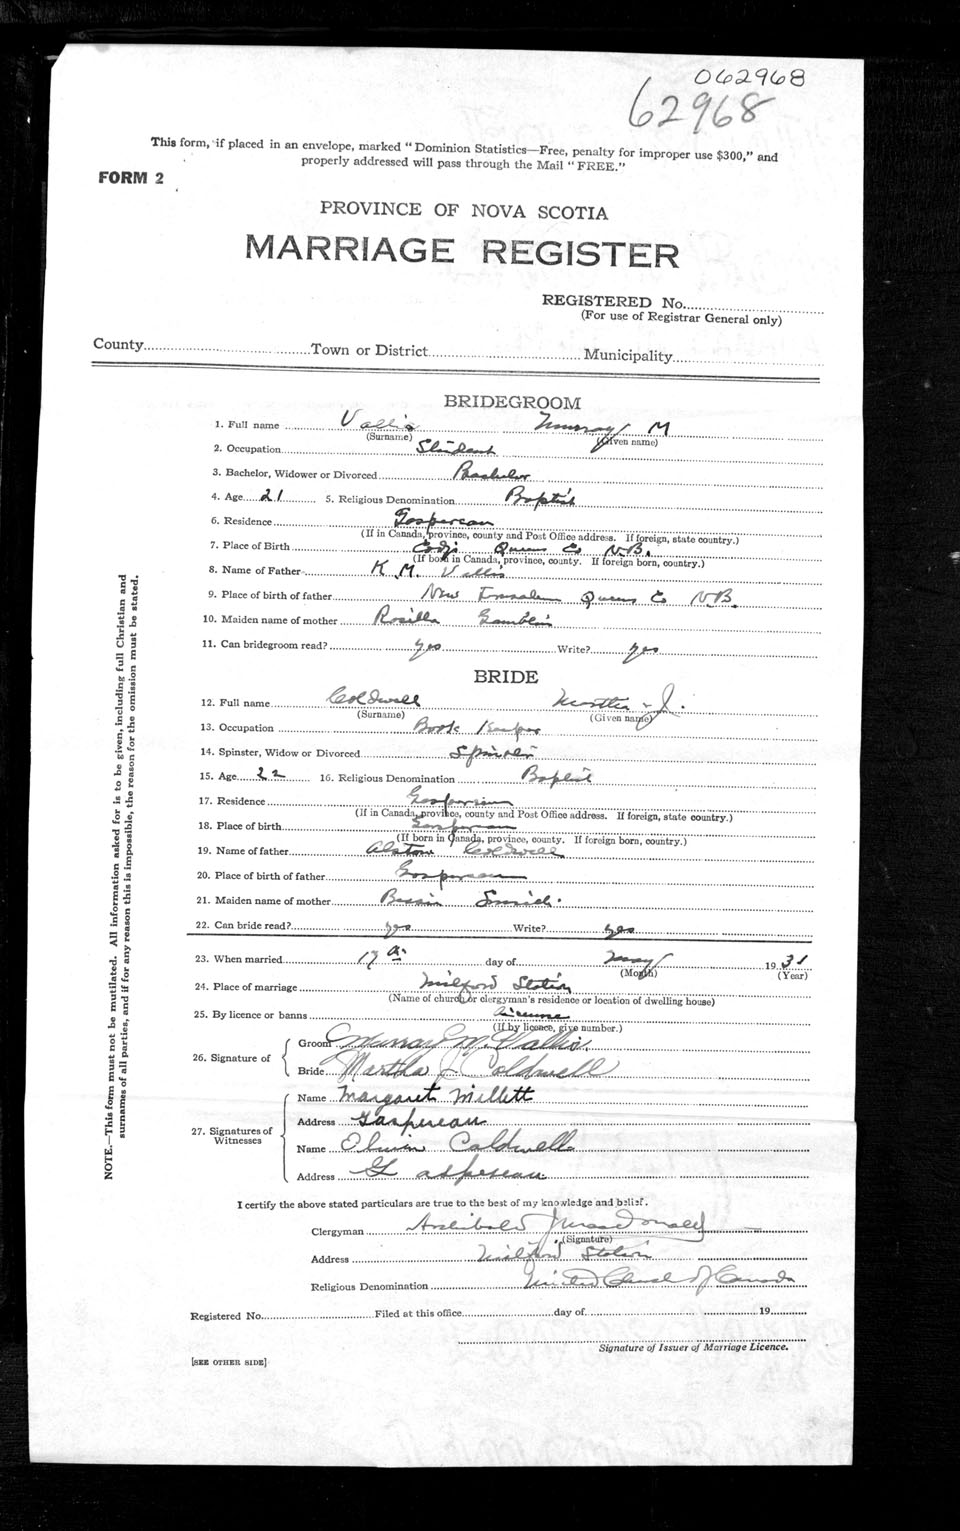 062968
62968
This form, if placed in an envelope, marked "Dominion Statistics—Free, penalty for improper use $300," and
properly addressed will pass through the Mail "FREE."
FORM 2
PROVINCE OF NOVA SCOTIA
MARRIAGE REGISTER
REGISTERED No.
(For use of Registrar General only)
County Town or District Municipality
BRIDEGROOM
1. Full name Vallis Murray M
(Surname) (Given name)
2. Occupation Student
3. Bachelor, Widower or Divorced Bachelor
4. Age 21 5. Religious Denomination Baptist
6. Residence Gaspereau
(If in Canada, province, county and Post Office address. If foreign, state country.)
7. Place of Birth Queens Co N.B.
(If born in Canada, province, county. If foreign born, country.)
8. Name of Father K. M. Vallis
9. Place of birth of father New Jerusalem Queens Co N.B.
10. Maiden name of mother Rosilla Gamblin
11. Can bridegroom read? yes Write? yes
BRIDE
12. Full name Coldwell Martha J.
(Surname) (Given name)
13. Occupation Book Keeper
14. Spinster, Widow or Divorced Spinster
15. Age 22 16. Religious Denomination Baptist
17. Residence Gaspereau
(If in Canada, province, county and Post Office address. If foreign, state country.)
18. Place of birth Gaspereau
(If born in Canada, province, county. If foreign born, country.)
19. Name of father Coldwell
20. Place of birth of father Gaspereau
21. Maiden name of mother Bessie
22. Can bride read? yes Write? yes
23. When married day of May 1931
(Month) (Year)
24. Place of marriage Milford Station
(Name of church or clergyman's residence or location of dwelling house)
25. By licence or banns licence
(If by licence, give number.)
26. Signature of
Groom Murray M. Vallis.
Bride Martha J Coldwell
27. Signatures of Witnesses
Name Margaret Millett
Address Gaspereau
Name Elwin Caldwell
Address Gaspereau.
I certify the above stated particulars are true to the best of my knowledge and belief.
Clergyman Archibald J MacDonald
(Signature)
Address Milford Station
Religious Denomination United Church of Canada
Registered No. Filed at this office day of 19
Signature of Issuer of Marriage Licence.
[SEE OTHER SIDE]
NOTE.—This form must not be mutilated. All information asked for is to be given, including full Christian and
surnames of all parties, and if for any reason this is impossible, the reason for the omission must be stated.